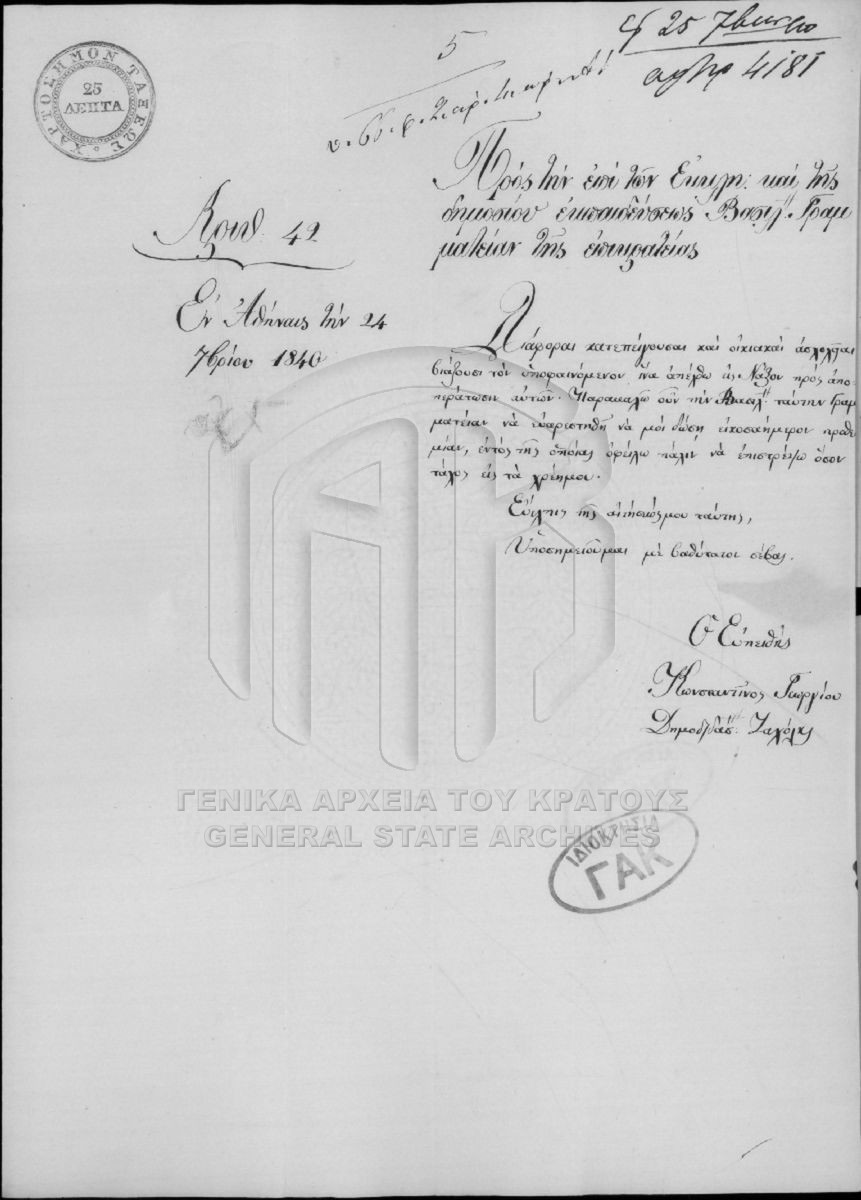 ΧΑΡΤΟΣΗΜΟΝ ΤΑΞΕΩΣ
25
ΛΕΠΤΑ
5
25 7βρίου
4181
Ἀριθ. 42
Ἐν Ἀθήναις τὴν 24
7βρίου 1840
Πρὸς τὴν ἐπὶ τῶν Ἐκκλη: καὶ τῆς
δημοσίου ἐκπαιδεύσεως Βασιλ: Γραμ
ματείαν τῆς ἐπικρατείας
Διάφοραι κατεπείγουσαι καὶ οἰκιακαὶ ἀσχολίαι
βιάζουσι τὸν ὑποφαινόμενον ἵνα ἀπέλθω εἰς Νάξον πρὸς ἀπο
περάτωσιν αὐτῶν. Παρακαλῶ οὖν τὴν Βασιλ: ταύτην Γραμ
ματείαν νὰ εὐαρεστηθῇ νὰ μοὶ δώσῃ εἰκοσαήμερον προθε
μίαν, ἐντὸς τῆς ὁποίας ὀφείλω πάλιν νὰ ἐπιστρέψω ὅσον
τάχος εἰς τὰ χρέη μου.
Εὔελπις τῆς αἰτήσεώς μου ταύτης,
Ὑποσημειοῦμαι μὲ βαθύτατον σέβας.
Ὁ Εὐπειθὴς
Κωνσταντῖνος Γεωργίου
Δημοδιδάσ:
ΓΕΝΙΚΑ ΑΡΧΕΙΑ ΤΟΥ ΚΡΑΤΟΥΣ
GENERAL STATE ARCHIVES
ΙΔΙΟΚΤΗΣΙΑ
ΓΑΚ